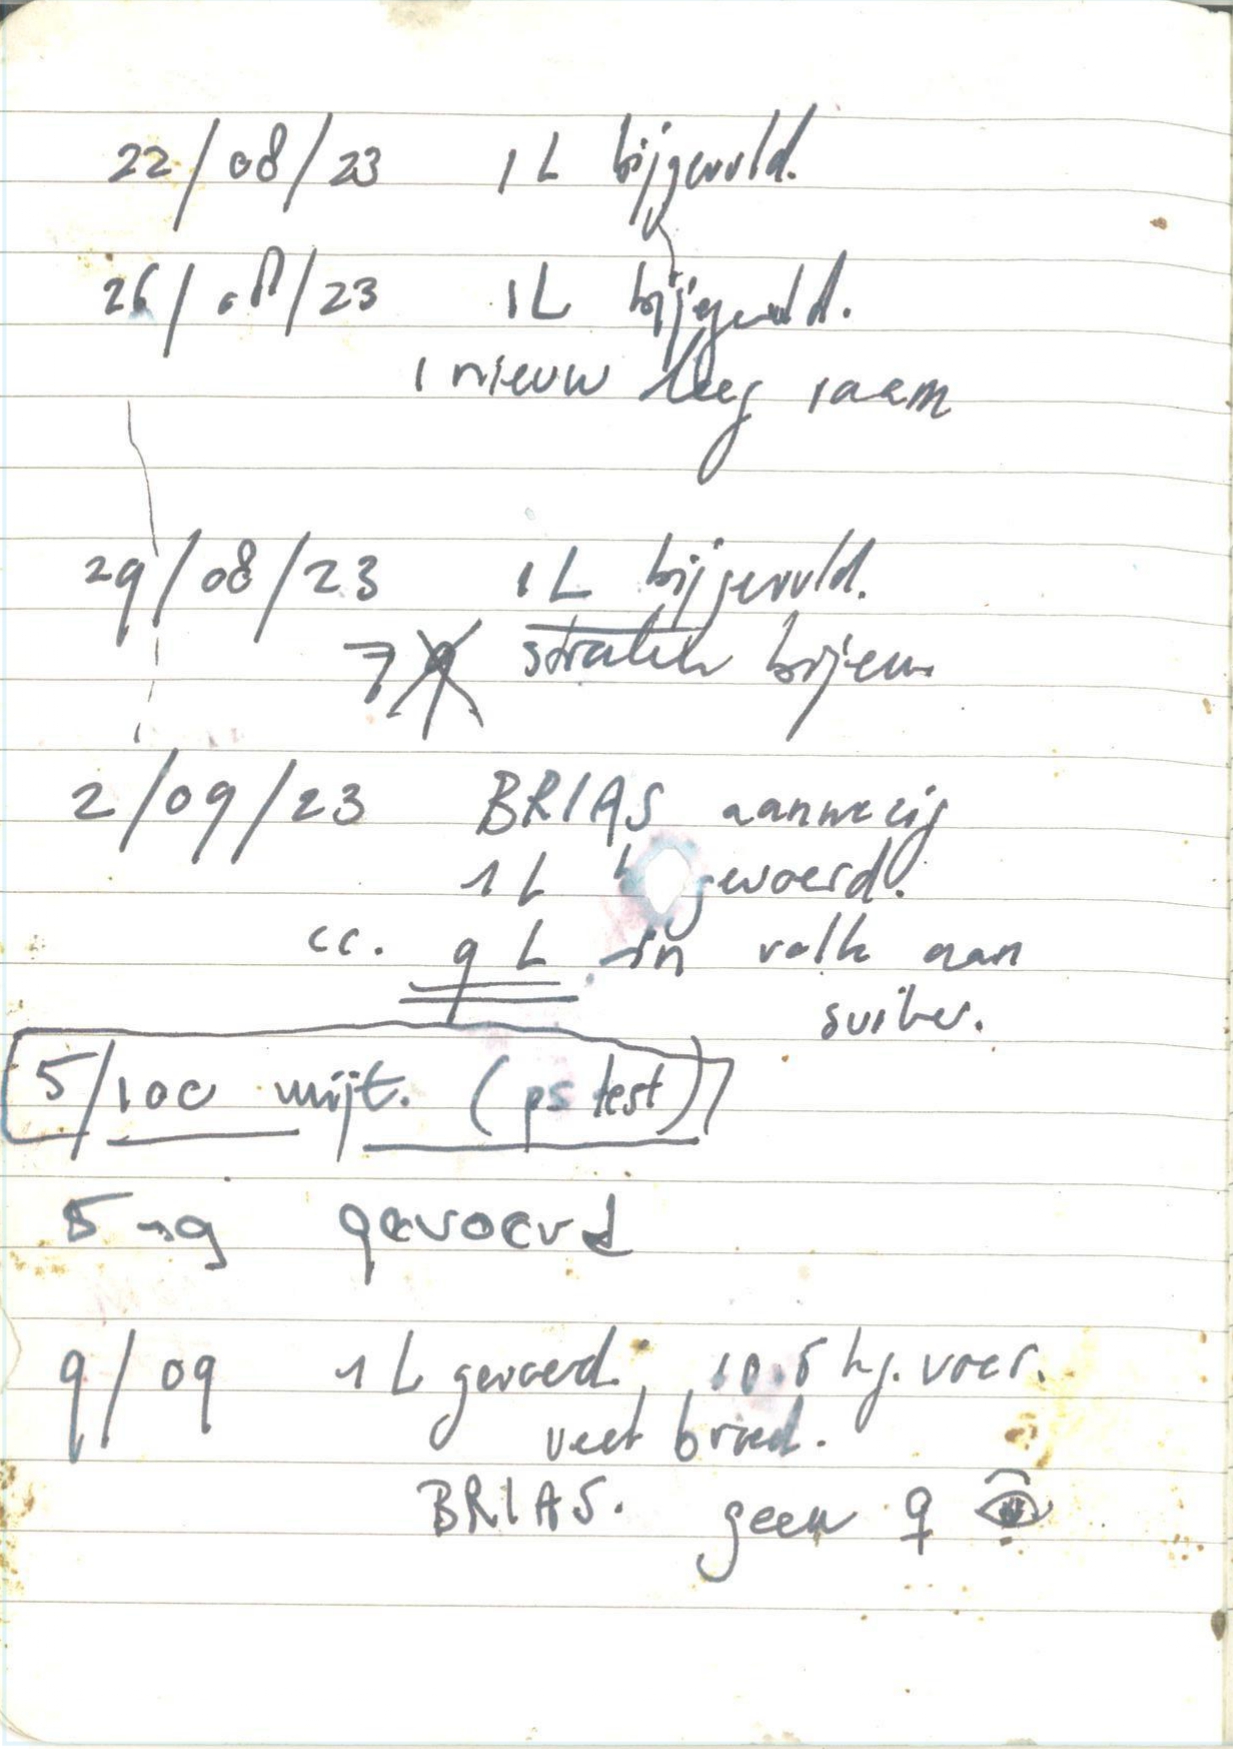 22/08/23 1L bijgevuld.
26/08/23 1L bijgevuld.
1 nieuw leeg raam
29/08/23 1L bijgevuld.
7 straten bijen.
2/09/23 BRIAS aanwezig
1L gevoerd.
cc. 9L in volk aan
suiker.
5/100 mijt. (ps test)
5-9 gevoerd
9/09 1L gevoerd. 10.5 kg. voer.
veel broed.
BRIAS. geen ♀